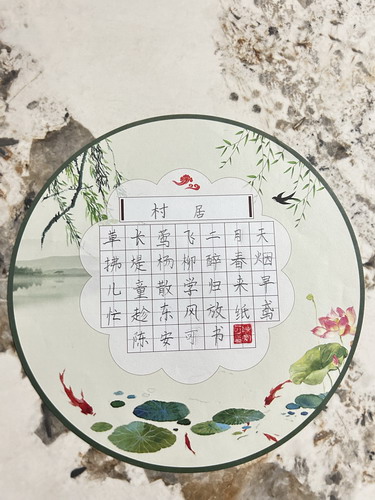 村居
草长莺飞二月天
拂堤杨柳醉春烟
儿童散学归来早
忙趁东风放纸鸢
陈安可书